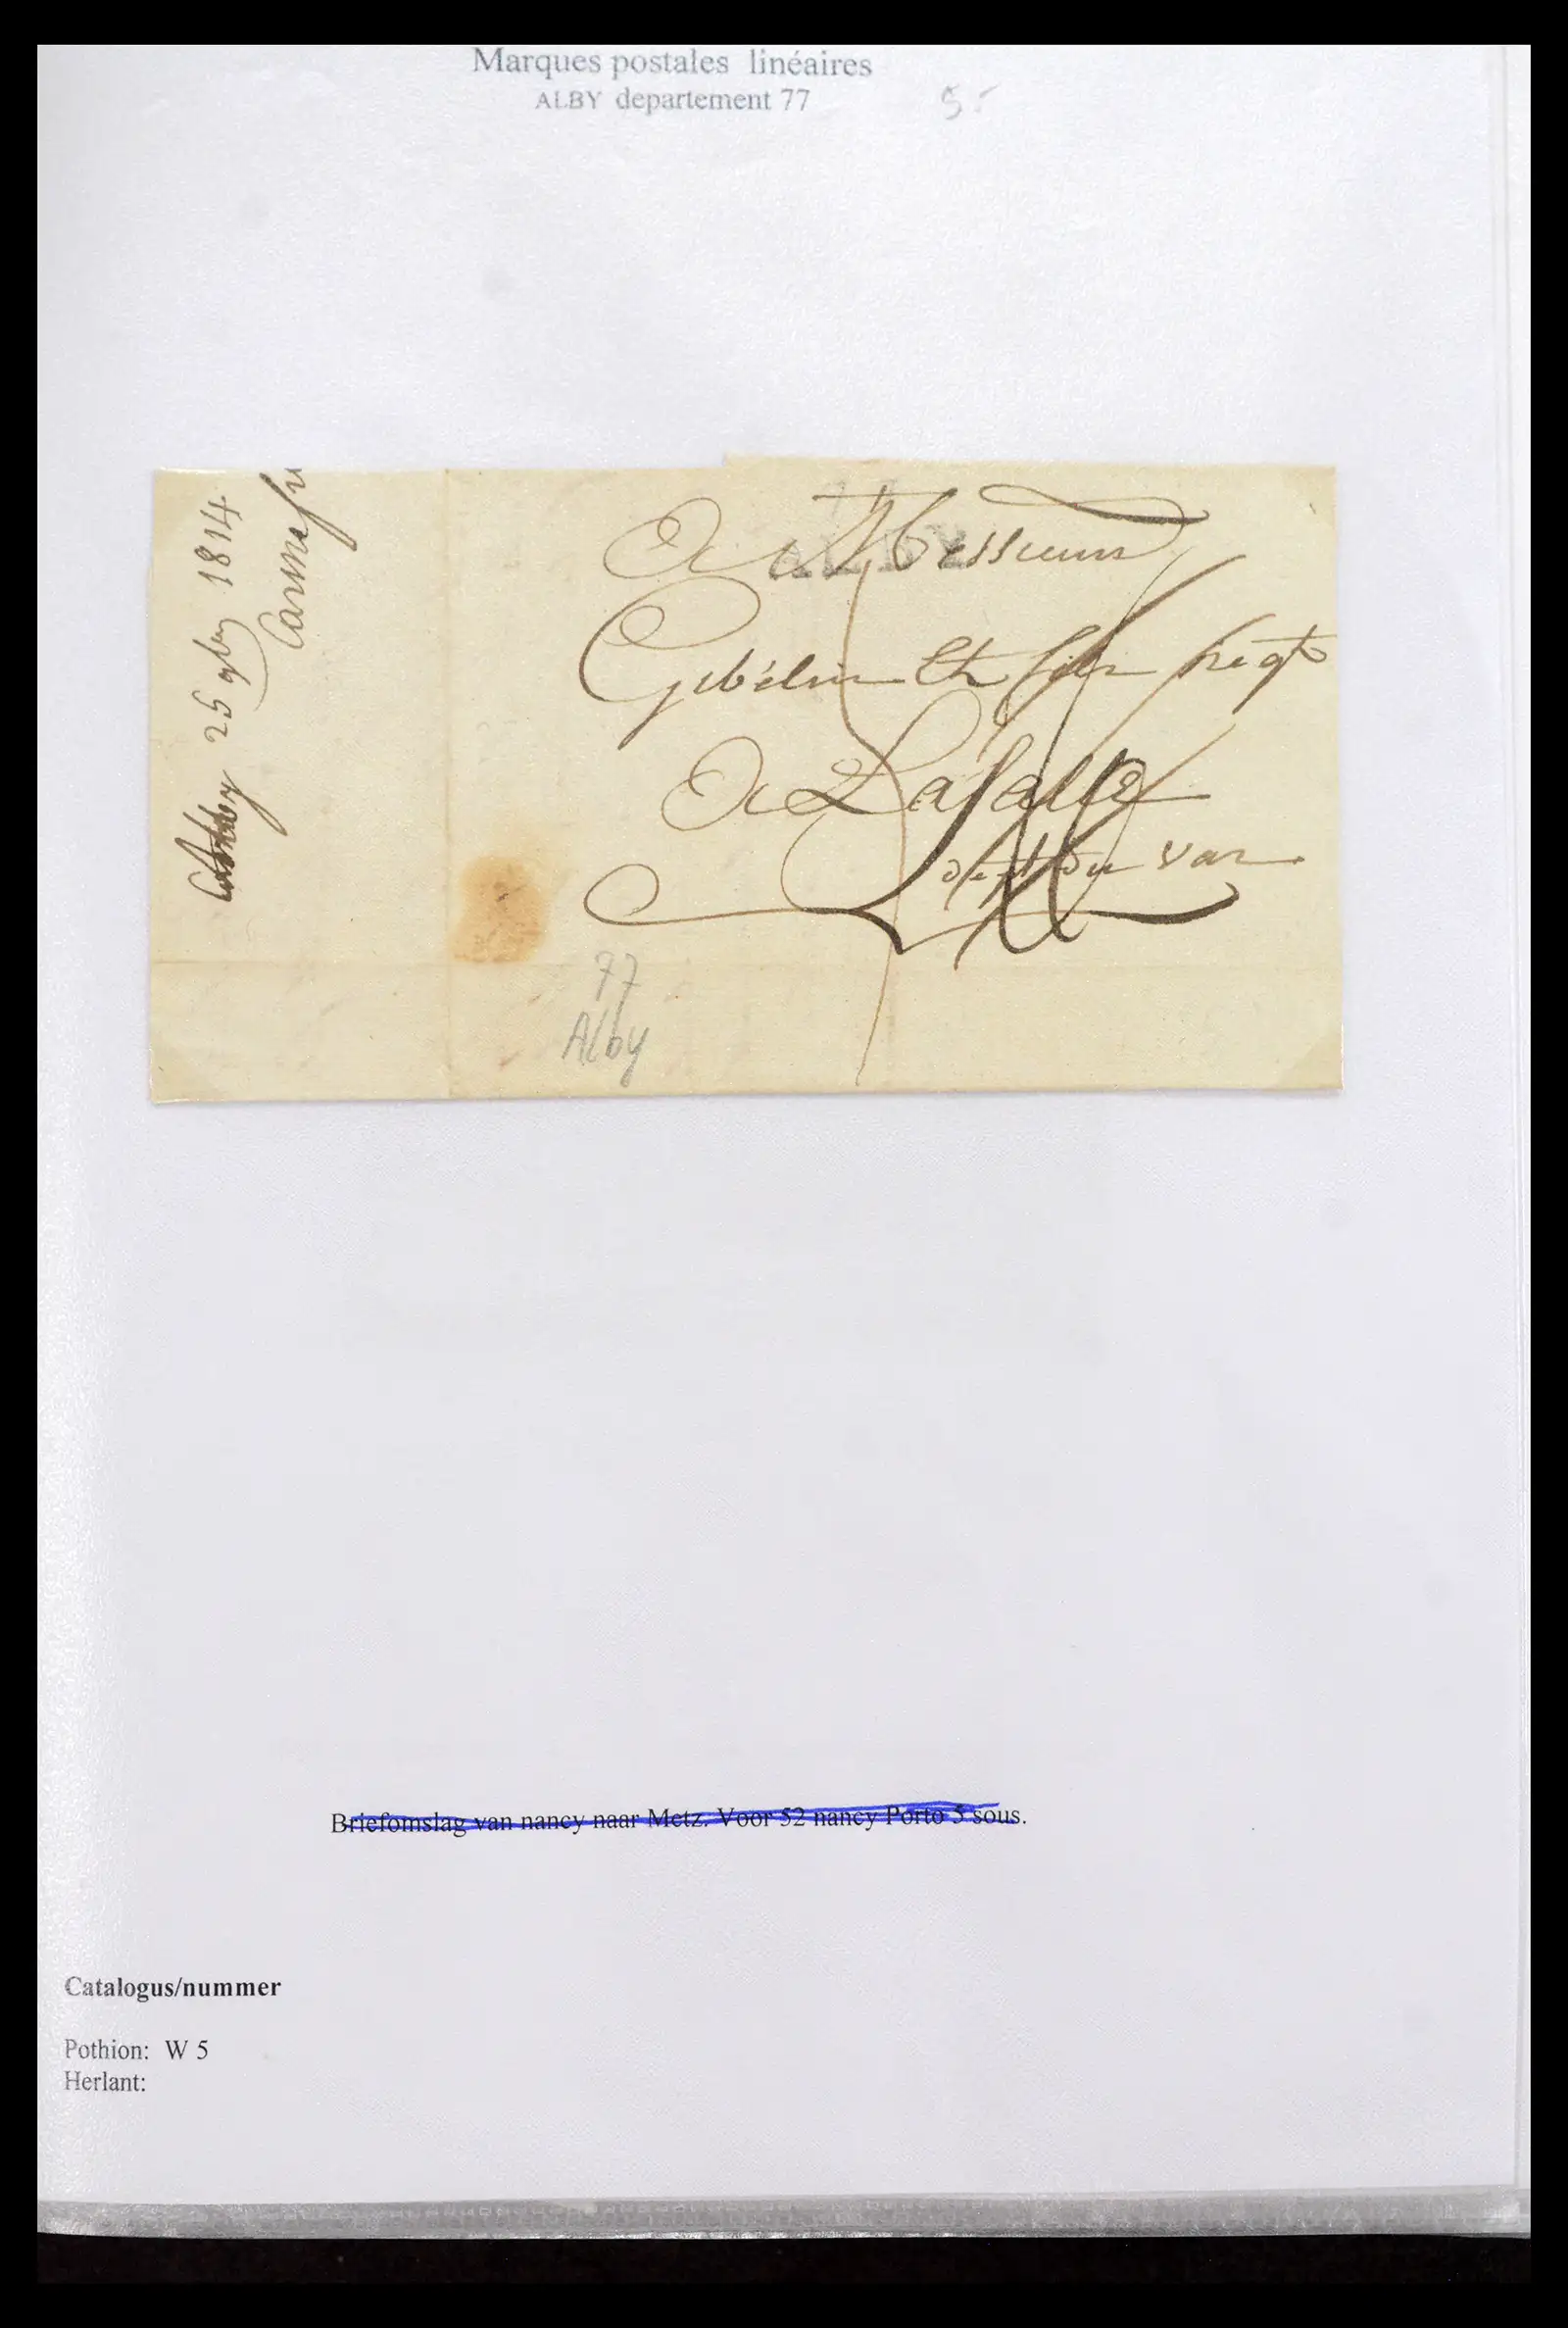 Marques postales linéaires
ALBY departement 77
5.-
25 9bre 1814
A Messieurs
Gibélin Et fils négts
A Lasalle
dept du var
77
Alby
Briefomslag van nancy naar Metz. Voor 52 nancy Porto 5 sous.
Catalogus/nummer
Pothion: W 5
Herlant: